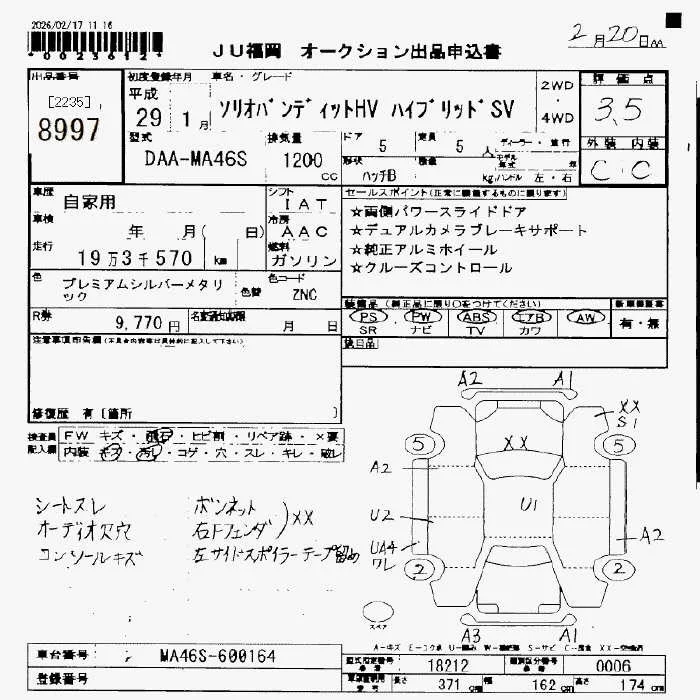 2026/02/17 11 16
*0023612*
JU福岡 オークション出品申込書
2月20日AA
出品番号
[2235]
8997
初度登録年月
平成
29 1月
車名・グレード
ソリオバンディットHV ハイブリッドSV
2WD
・
4WD
評価点
3.5
外装 内装
C C
型式
DAA-MA46S
排気量
1200 cc
ドア
5
定員
5 人
形状
ハッチB
積量
kg
ディーラー・並行
モデル年式 年
ハンドル 左・右
車歴
自家用
車検
年 月( 日)
走行
19万3千570 km
シフト
IAT
冷房
AAC
燃料
ガソリン
セールスポイント(正常に機能するものに限ります)
☆両側パワースライドドア
☆デュアルカメラブレーキサポート
☆純正アルミホイール
☆クルーズコントロール
色
プレミアムシルバーメタリ
ック
色替
色コード
ZNC
R券
9,770 円
名変通知期限
月 日
装備品(純正品に限り○をつけてください)
PS PW ABS エアB AW
SR ナビ TV カワ
新車保証書
有・無
後日品
注意事項申告欄(不具合内容等は具体的に記入して下さい)
修復歴 有〔箇所 〕
検査員
記入欄
FW キズ・飛石・ヒビ割・リペア跡・×要
内装 キズ・汚れ・コゲ・穴・スレ・キレ・破レ
シートスレ
オーディオ穴穴
コンソールキズ
ボンネット
右Fフェンダ )XX
左サイドスポイラーテープ留め
A2 A1
XX
S1
5 5
XX
A2
U1
U2
A2
UA4
ワレ
2 2
スペア
A3 A1
A-キズ E-エコボ U-凹み W-補修跡 S-サビ C-腐食 XX-交換済
車台番号
MA46S-600164
登録番号
型式指定番号
18212
類別区分番号
0006
長さ 371 cm 幅 162 cm 高さ 174 cm